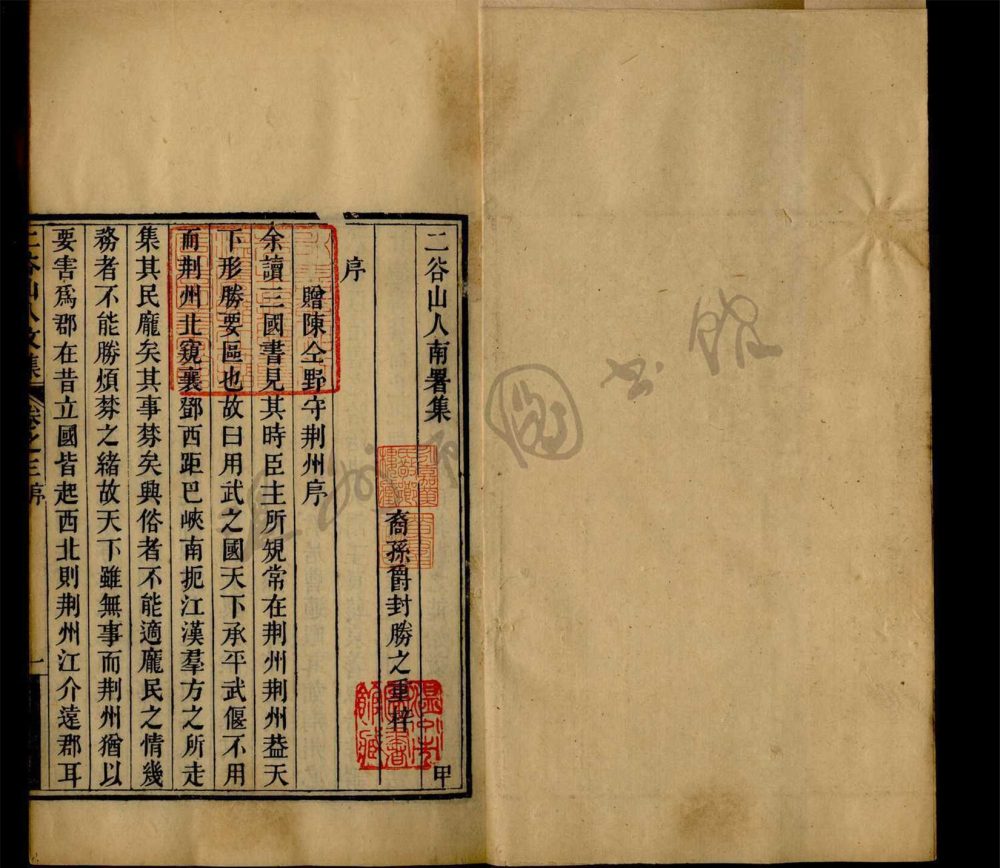 二谷山人南署集　　甲
裔孫爵封勝之重梓
序
贈陳仝野守荆州序
余讀三國書見其時臣主所䂓常在荆州荆州葢天
下形勝要區也故曰用武之國天下承平武偃不用
而荆州北窺襄鄧西距巴峽南扼江漢羣方之所走
集其民龐矣其事棼矣興俗者不能適龐民之情幾
務者不能勝煩棼之緒故天下雖無事而荆州猶以
要害爲郡在昔立國皆起西北則荆州江介遠郡耳
二谷山人文集　卷之三序　一
圖書館